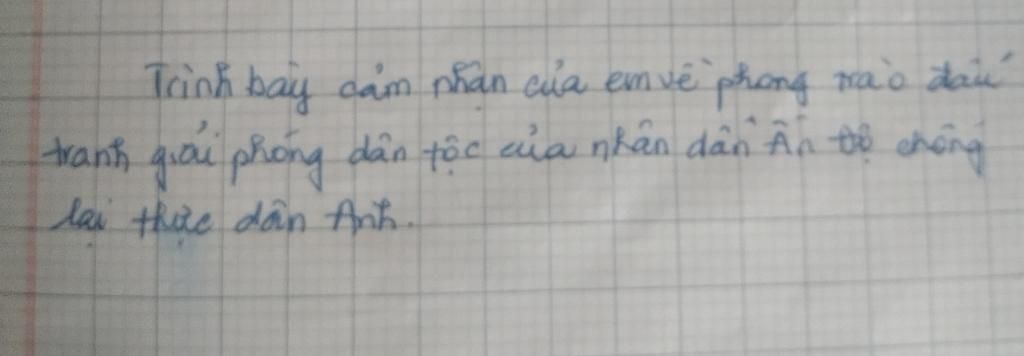 Trình bày cảm nhận của em về phong trào đấu
tranh giải phóng dân tộc của nhân dân Ấn Độ chống
lại thực dân Anh.